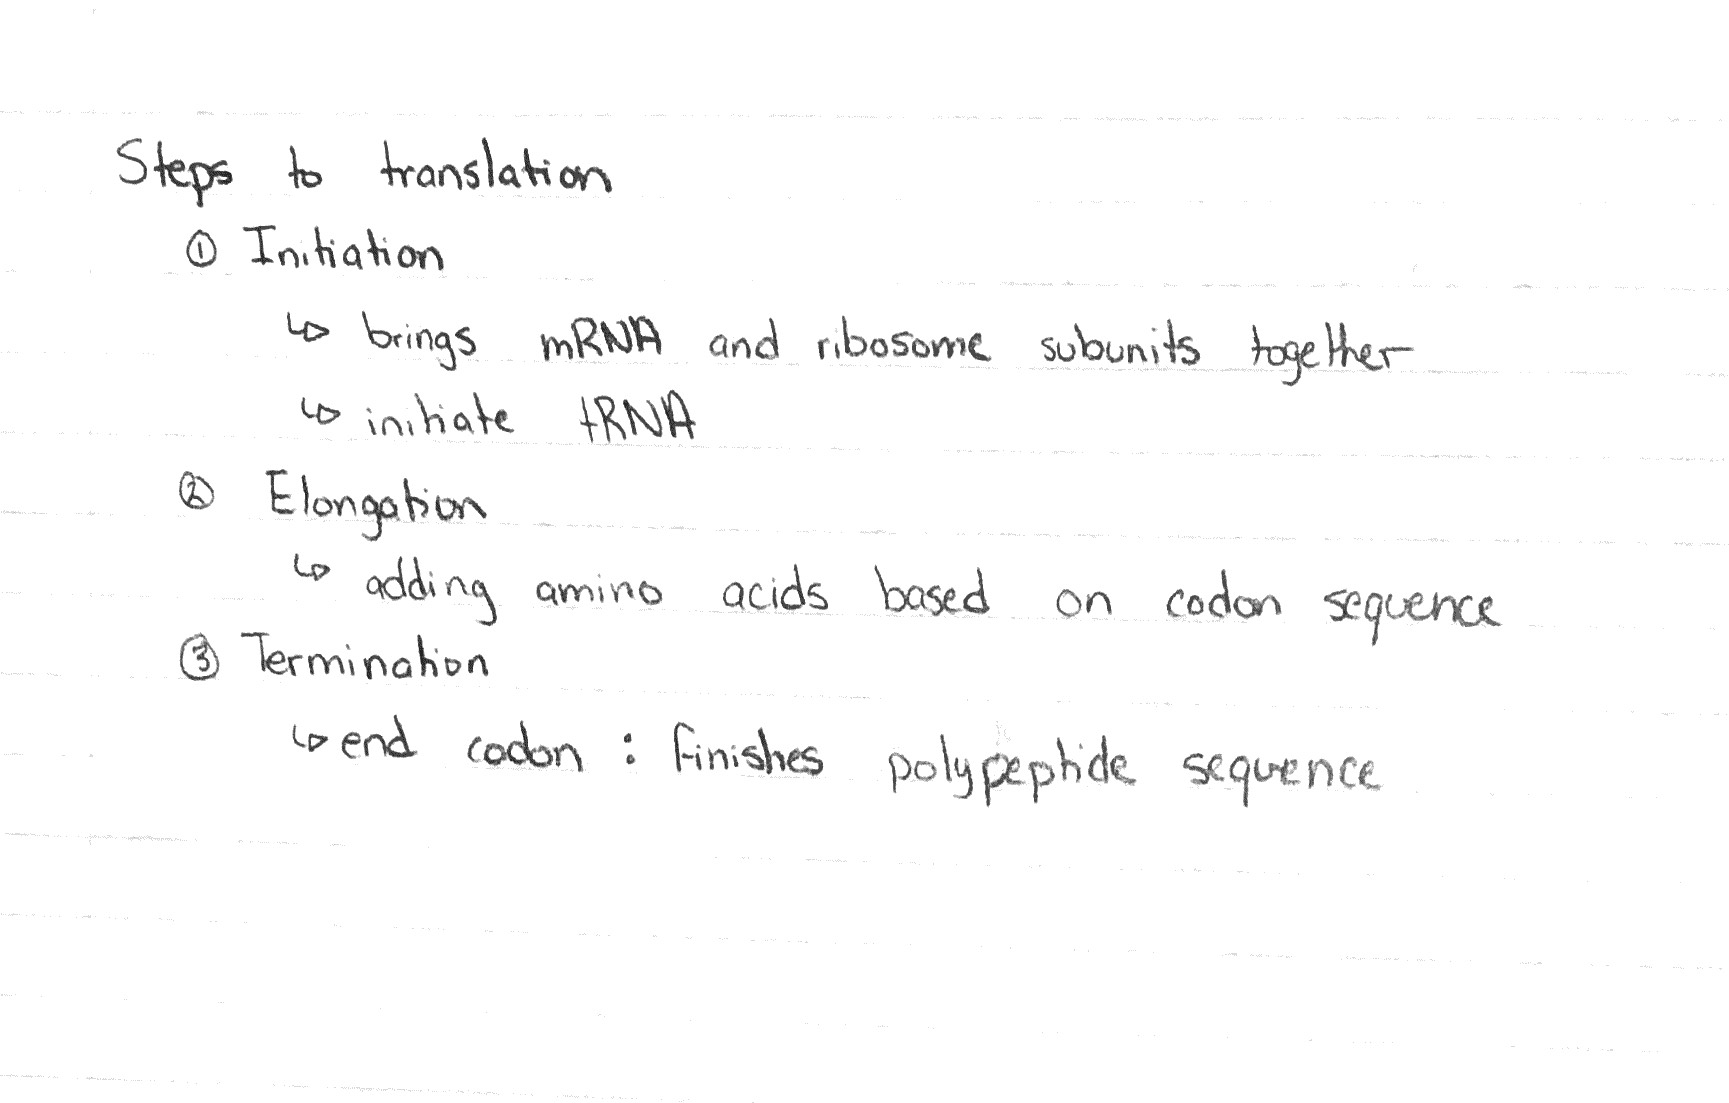 Steps to translation
① Initiation
↳ brings mRNA and ribosome subunits together
↳ initiate tRNA
② Elongation
↳ adding amino acids based on codon sequence
③ Termination
↳ end codon : finishes polypeptide sequence